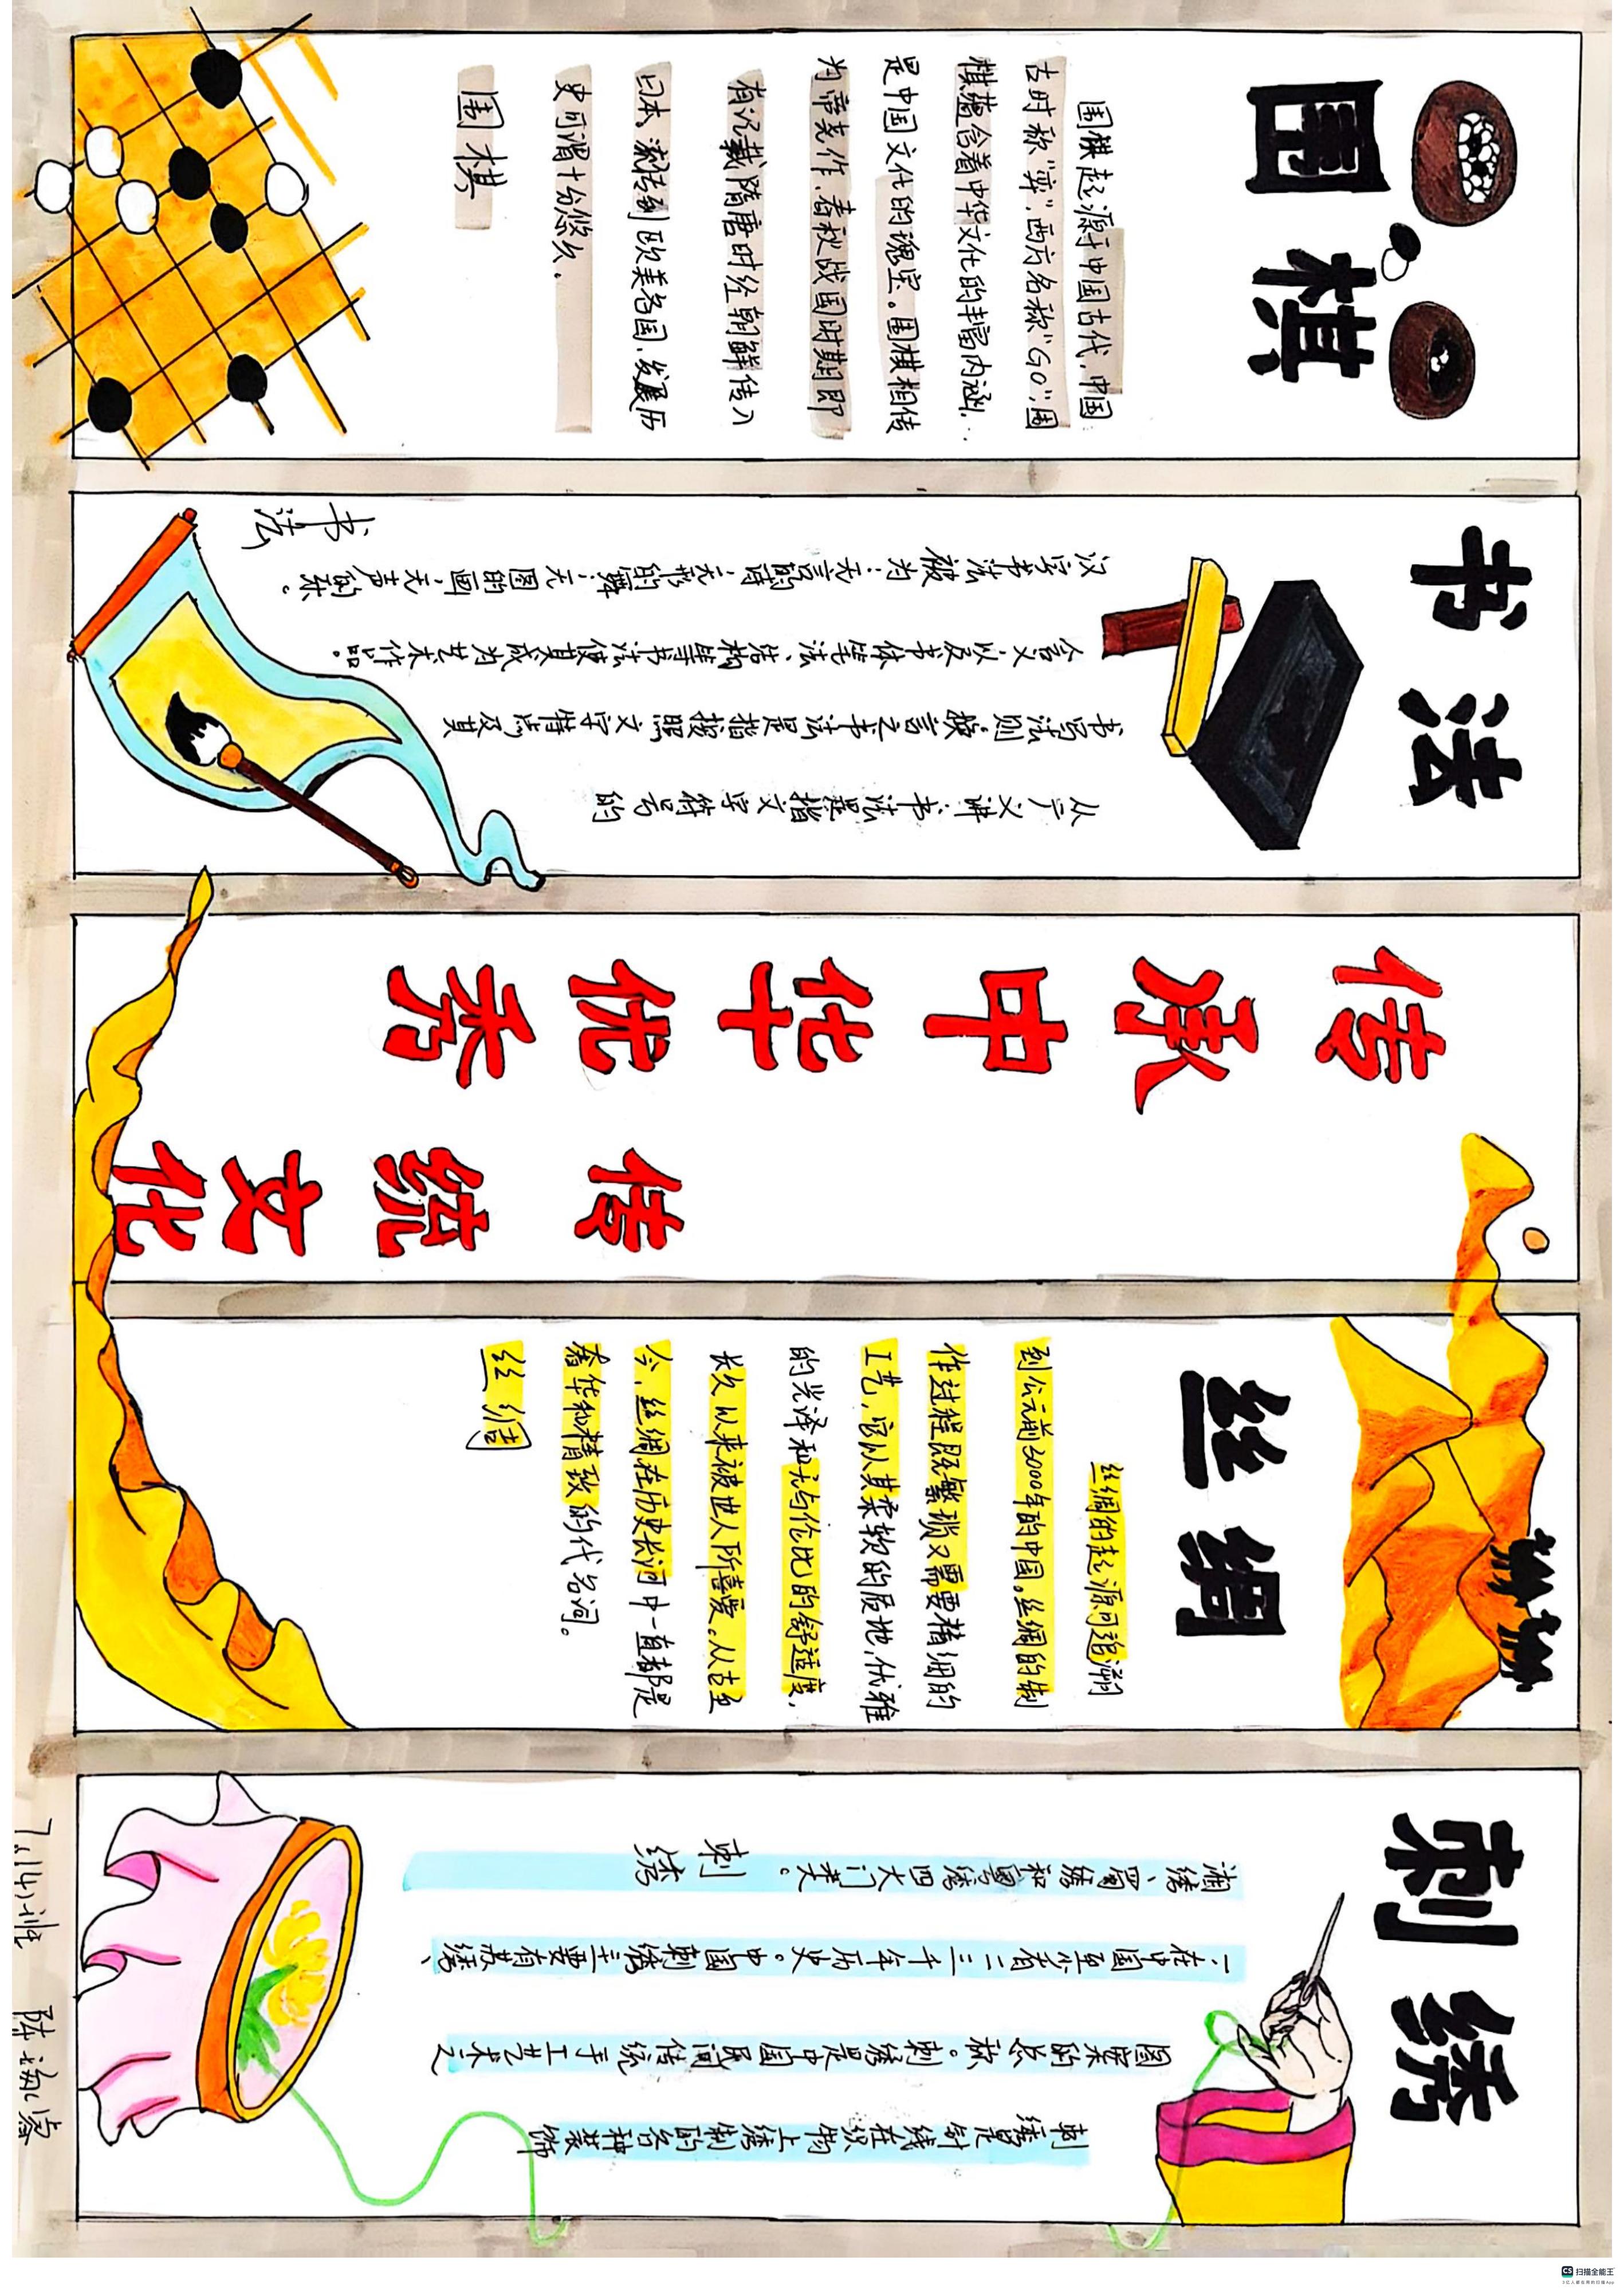 围棋
围棋起源于中国古代,中国
古时称"弈",西方名称"GO",围
棋蕴含着中华文化的丰富内涵,
是中国文化的瑰宝。围棋相传
为帝尧作,春秋战国时期即
有记载隋唐时经朝鲜传入
日本,流传到欧美各国,发展历
史可谓十分悠久.
围棋
书法
从广义讲,书法是指文字符号的
书写法则.换言之,书法是指按照文字特点及其
含义,以及书体笔法、结构等书法使其成为艺术作品。
汉字书法被为:无言的诗,无形的舞;无图的画,无声的乐。
书法
传承中华优秀
传统文化
丝绸
丝绸的起源可追溯
到公元前3000年的中国。丝绸的制
作过程既繁琐又需要精细的
工艺,它以其柔软的质地,优雅
的光泽和无与伦比的舒适度,
长久以来被世人所喜爱。从古至
今,丝绸在历史长河中一直都是
奢华和精致的代名词。
丝绸
刺绣
刺绣是针线在织物上绣制的各种装饰
图案的总称。刺绣是中国民间传统手工艺术之
一,在中国至少有二三千年历史。中国刺绣主要有苏绣、
湘绣、蜀绣和粤绣四大门类。
刺绣
7.(14)班 陈
CS 扫描全能王
3亿人都在用的扫描App